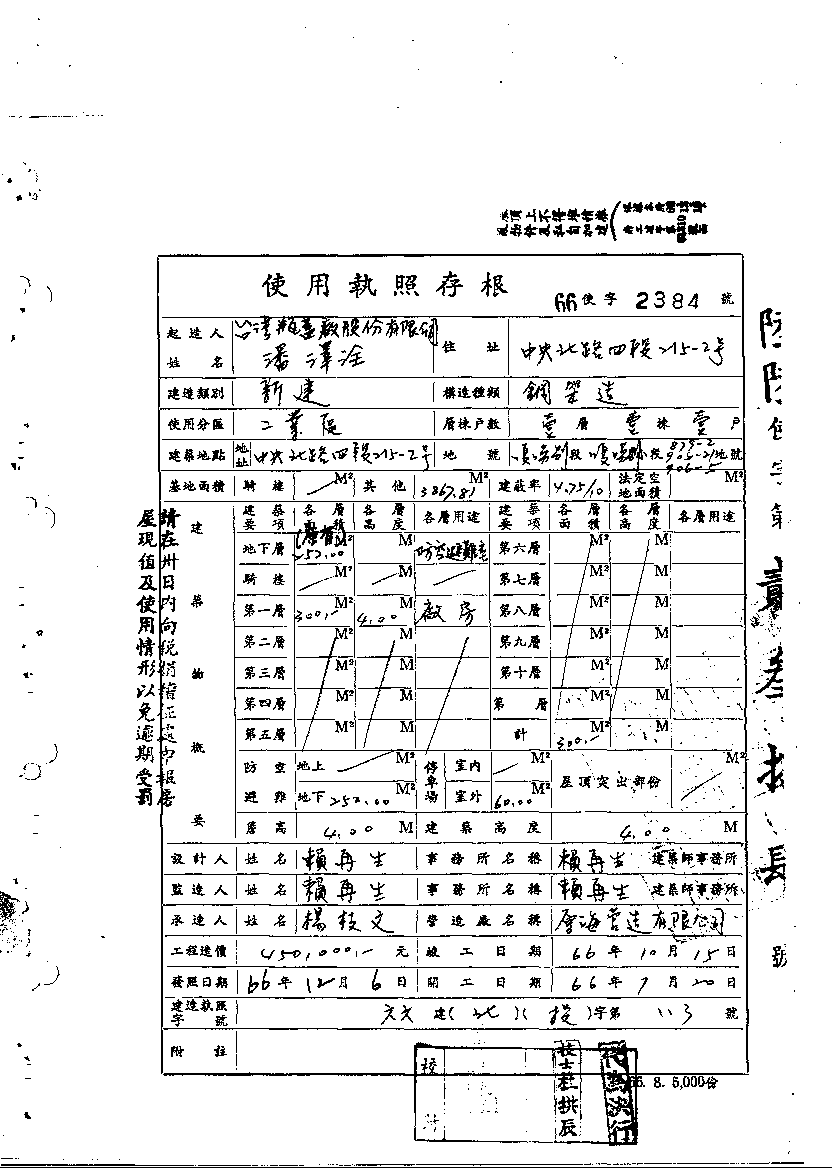 使用執照存根
66使字2384號
起造人姓名 台灣瓶蓋廠股份有限公司 潘澤淦 住址 中央北路四段215-2号
建造類別 新建 構造種類 鋼架造
使用分區 工業區 層棟戶數 壹層 壹棟 壹戶
建築地點 地址 中央北路四段215-2号 地號 段 小段 地號
基地面積 騎樓 M² 其他 3867.81 M² 建蔽率 4.75/10 法定空地面積 M²
建築物概要
建築要項 各層面積 各層高度 各層用途 建築要項 各層面積 各層高度 各層用途
地下層 252.00 M² M 防空避難室 第六層 M² M
騎樓 M² M 第七層 M² M
第一層 300.- M² 4.00 M 廠房 第八層 M² M
第二層 M² M 第九層 M² M
第三層 M² M 第十層 M² M
第四層 M² M 第 層 M² M
第五層 M² M 計 300.- M² M
防空避難 地上 M² 停車場 室內 M² 屋頂突出部份 M²
地下 252.00 M² 室外 60.00 M²
簷高 4.00 M 建築高度 4.00 M
設計人 姓名 賴再生 事務所名稱 賴再生 建築師事務所
監造人 姓名 賴再生 事務所名稱 賴再生 建築師事務所
承造人 姓名 楊枝文 營造廠名稱 厝海營造有限公司
工程造價 450,000.- 元 竣工日期 66年10月15日
發照日期 66年12月6日 開工日期 66年7月20日
建造執照字號 六六建(北)(投)字第113號
附註
校對
技士杜拱辰
66. 8. 5,000份
請在卅日內向稅捐稽征處申報房
屋現值及使用情形以免逾期受罰